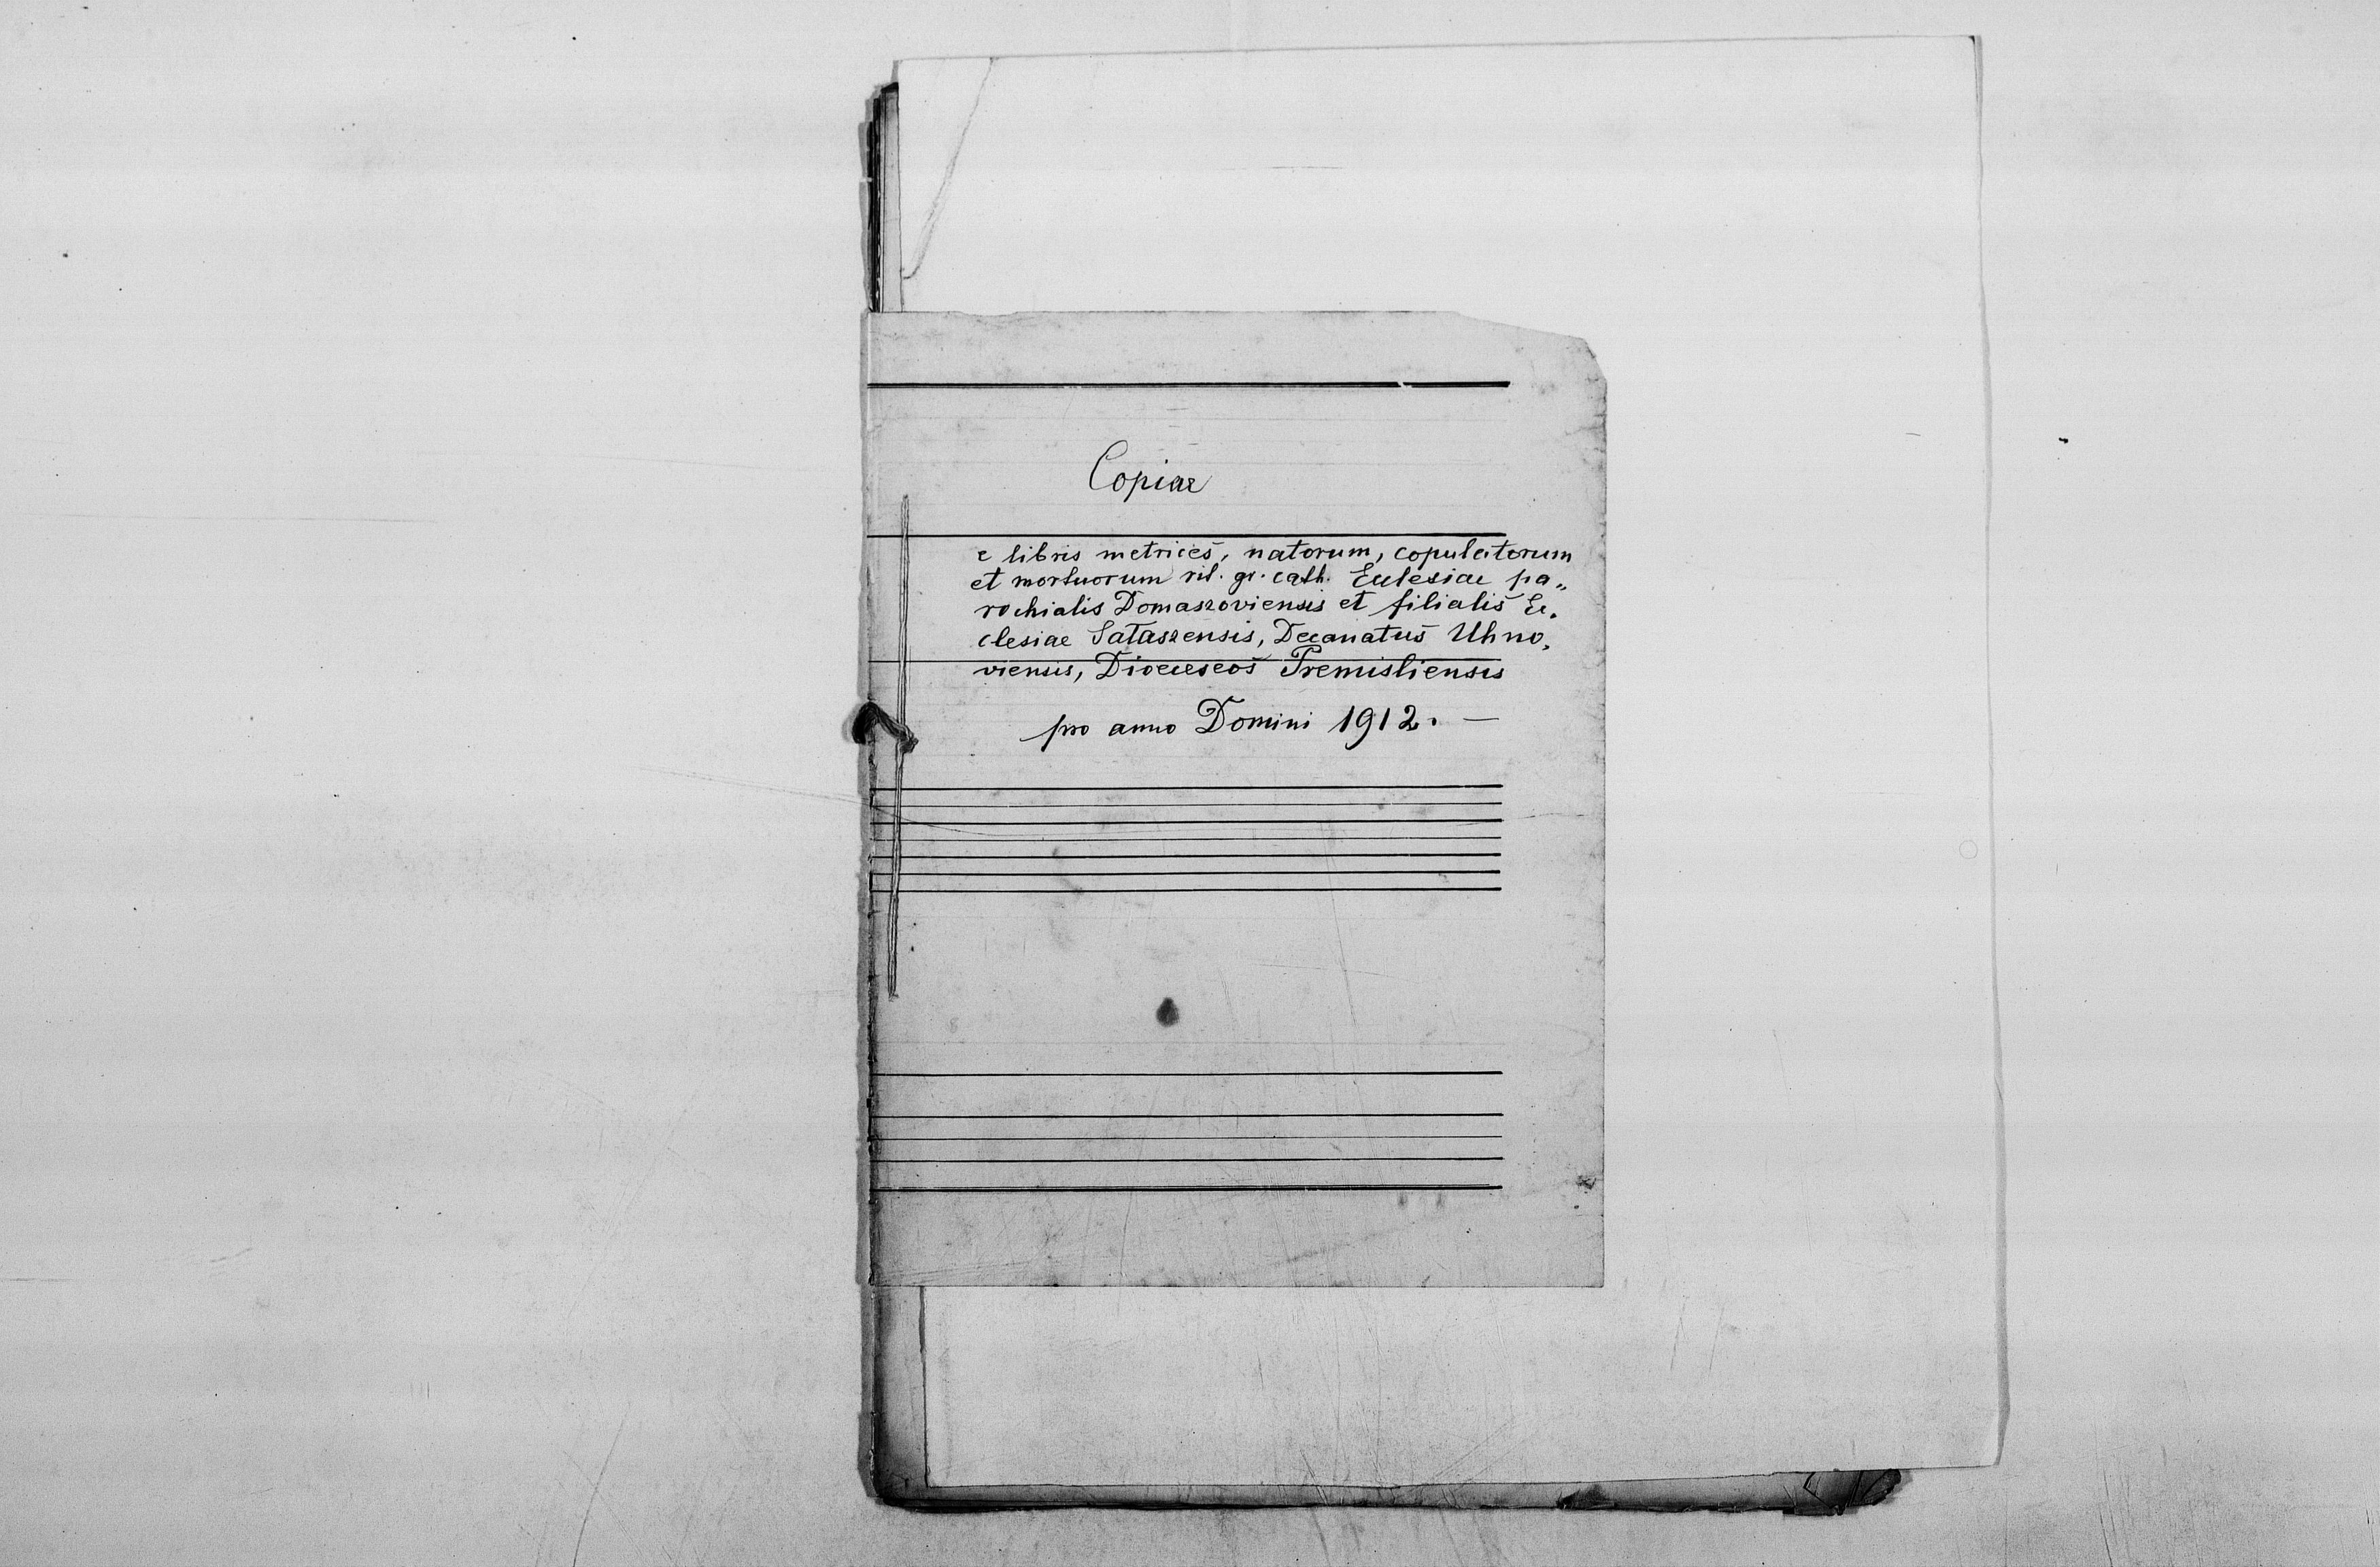 Copiae
e libris metrices, natorum, copulatorum
et mortuorum rit. gr. cath. Ecclesiae pa„
rochialis Domaszoviensis et filialis Ec„
clesiae Sataszensis, Decanatus Uhno„
viensis, Dioeceseos Premisliensis
pro anno Domini 1912. —